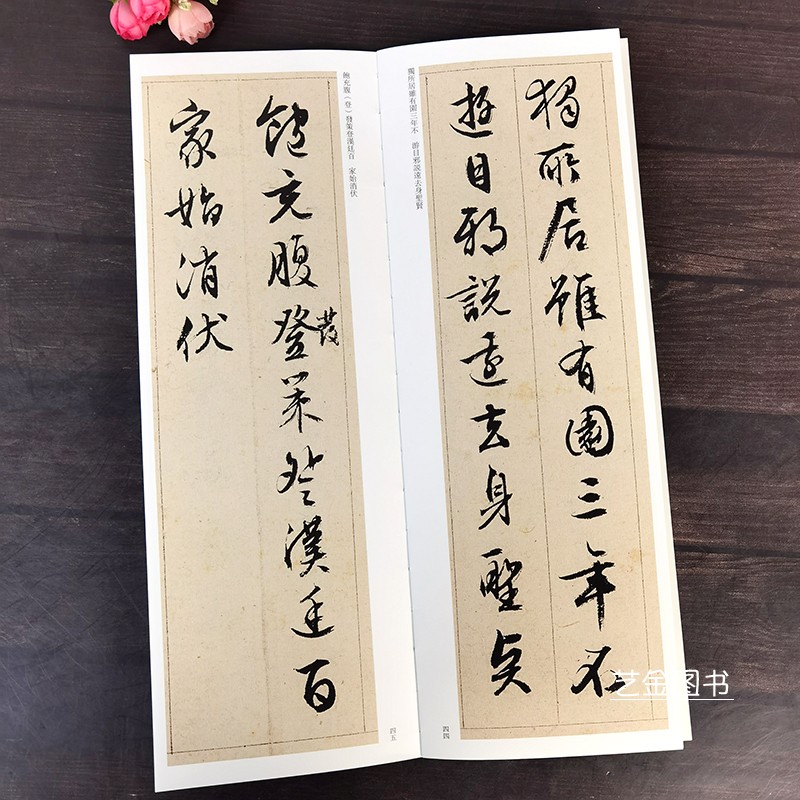 獨所居雖有園三年不
遊目邪說遠去身聖賢
獨所居雖有園三年不　游目邪説遠去身聖賢
四四
飽充腹登發策登漢廷百
家始消伏
飽充腹（登）發策登漢廷百　家始消伏
四五
艺金图书